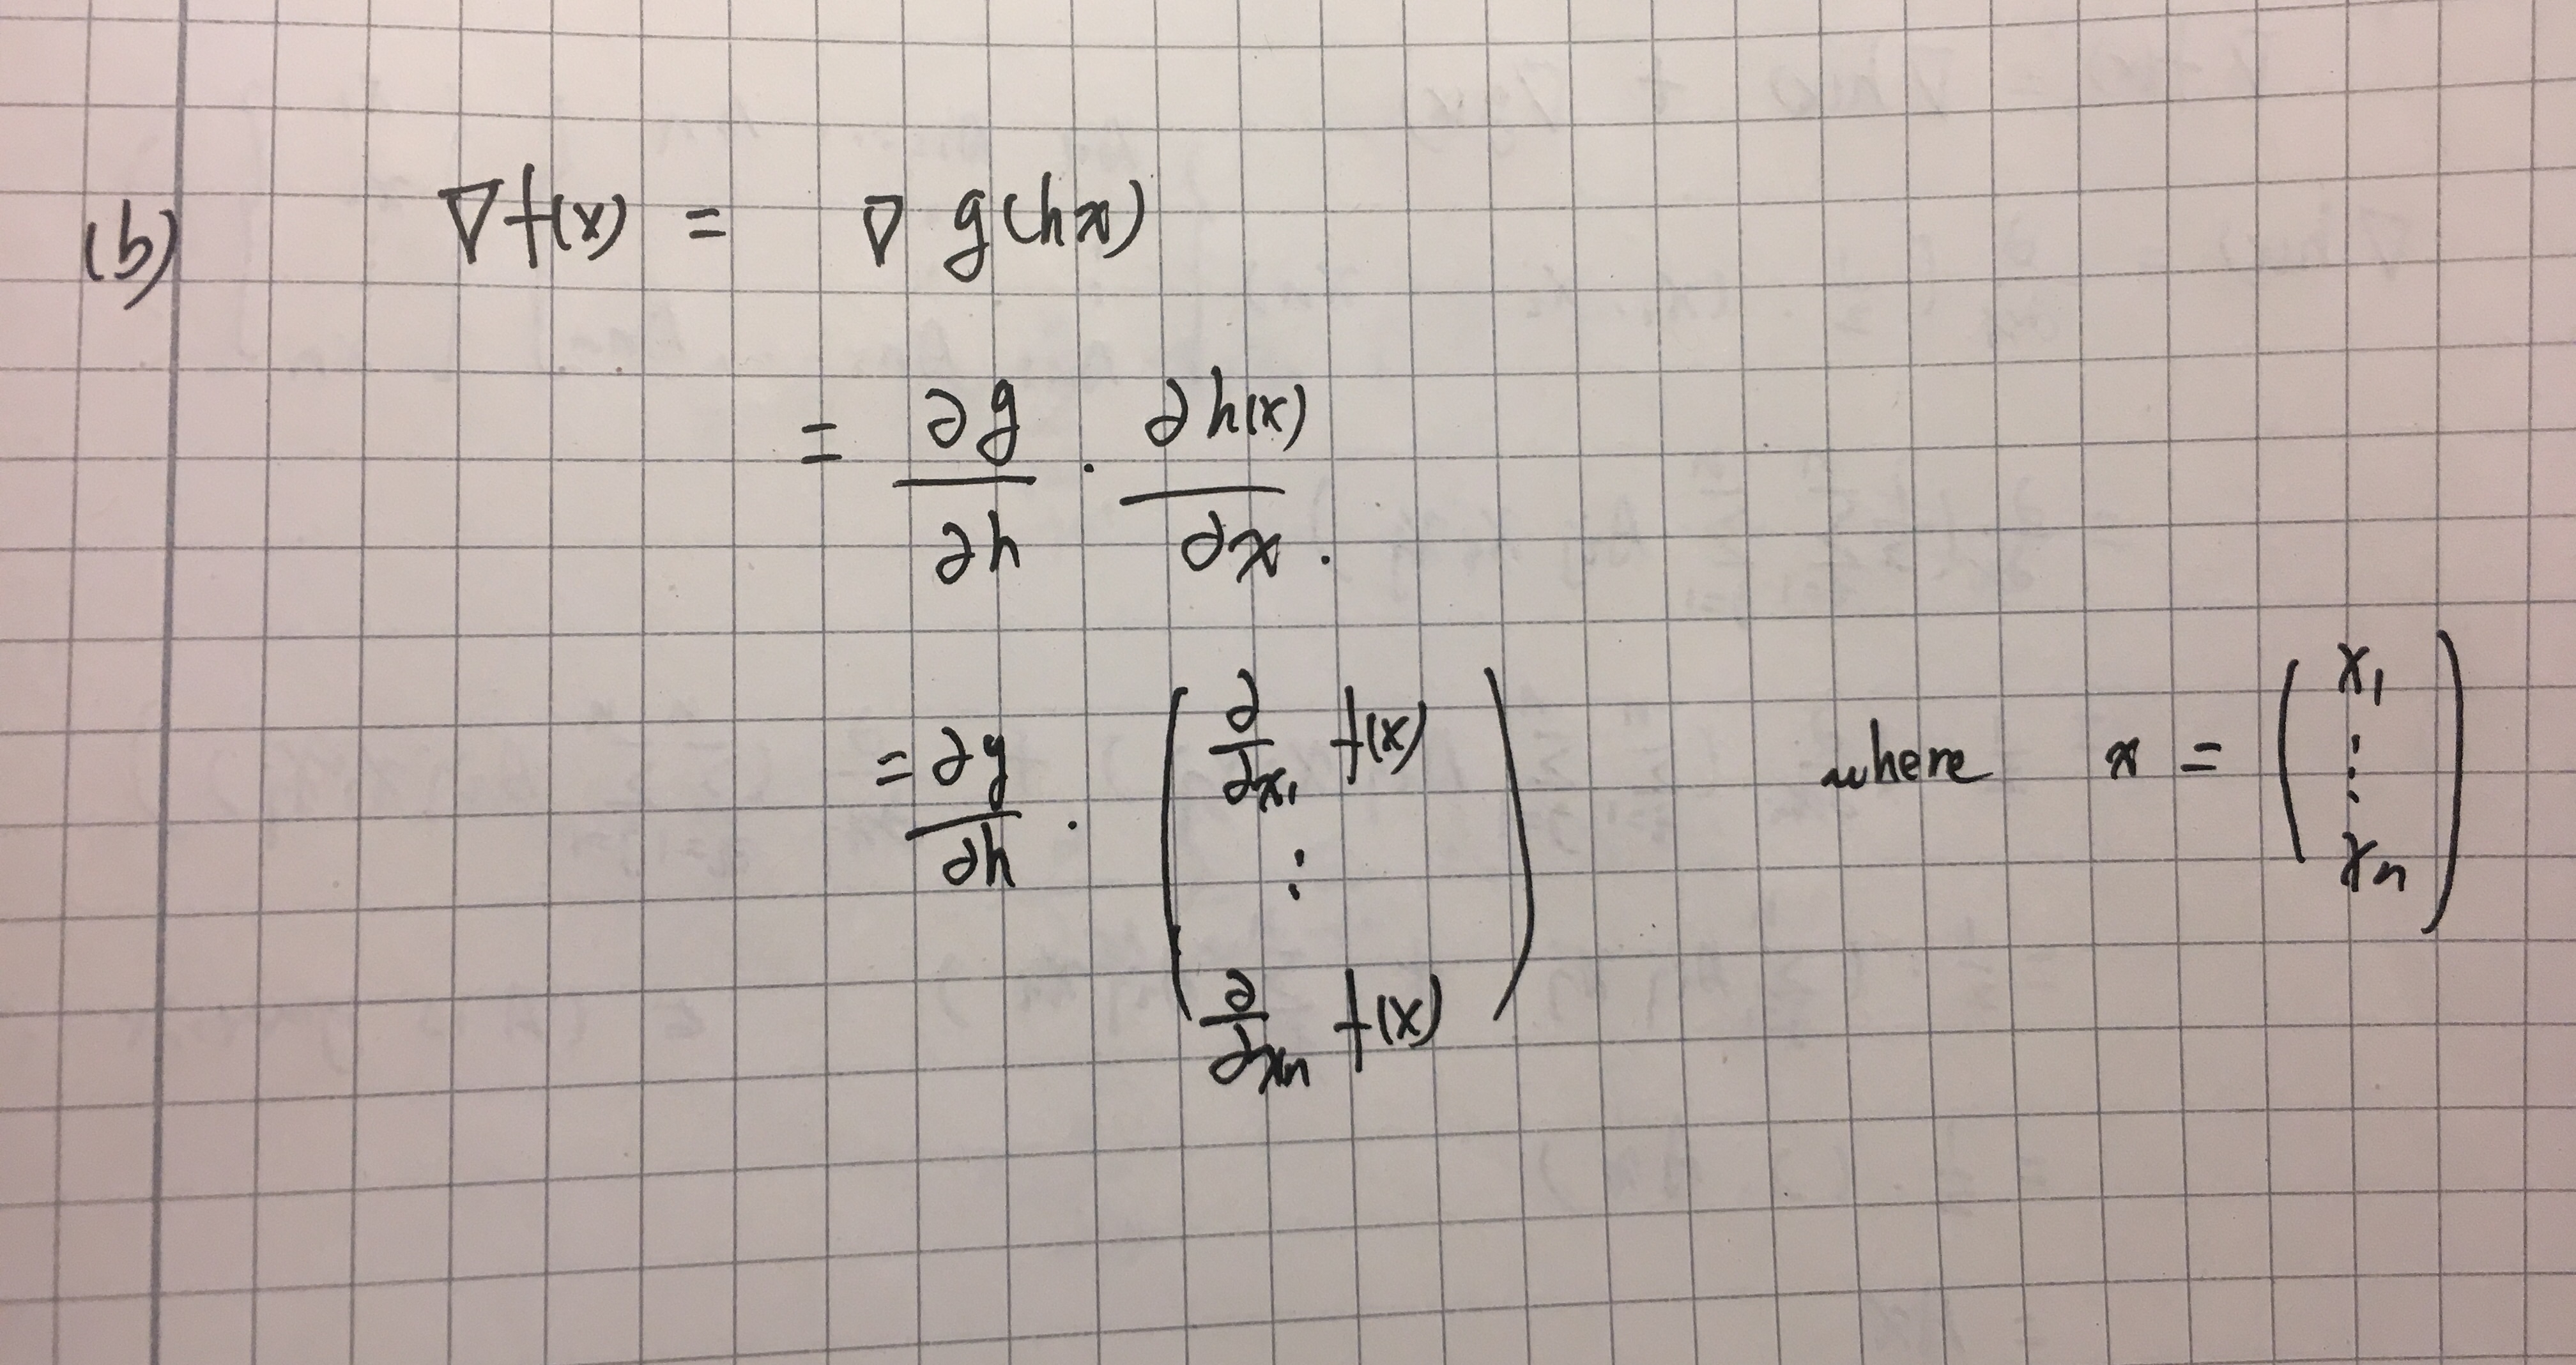 (b) ∇f(x) = ∇ g(hx)
= ∂g/∂h · ∂h(x)/∂x .
= ∂g/∂h · ( ∂/∂x₁ f(x) ⋮ ∂/∂xₙ f(x) ) where x = ( x₁ ⋮ xₙ )